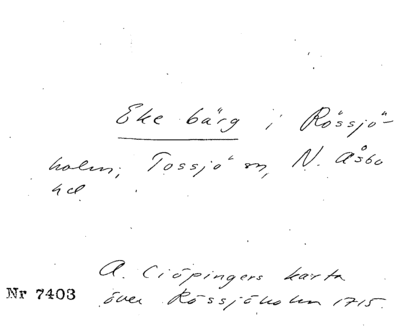 Eke bärg i Rössjö-
holm, Tossjö sn, N. Åsbo
hd
A. Ciöpingers karta
Nr 7403 över Rössjöholm 1715.